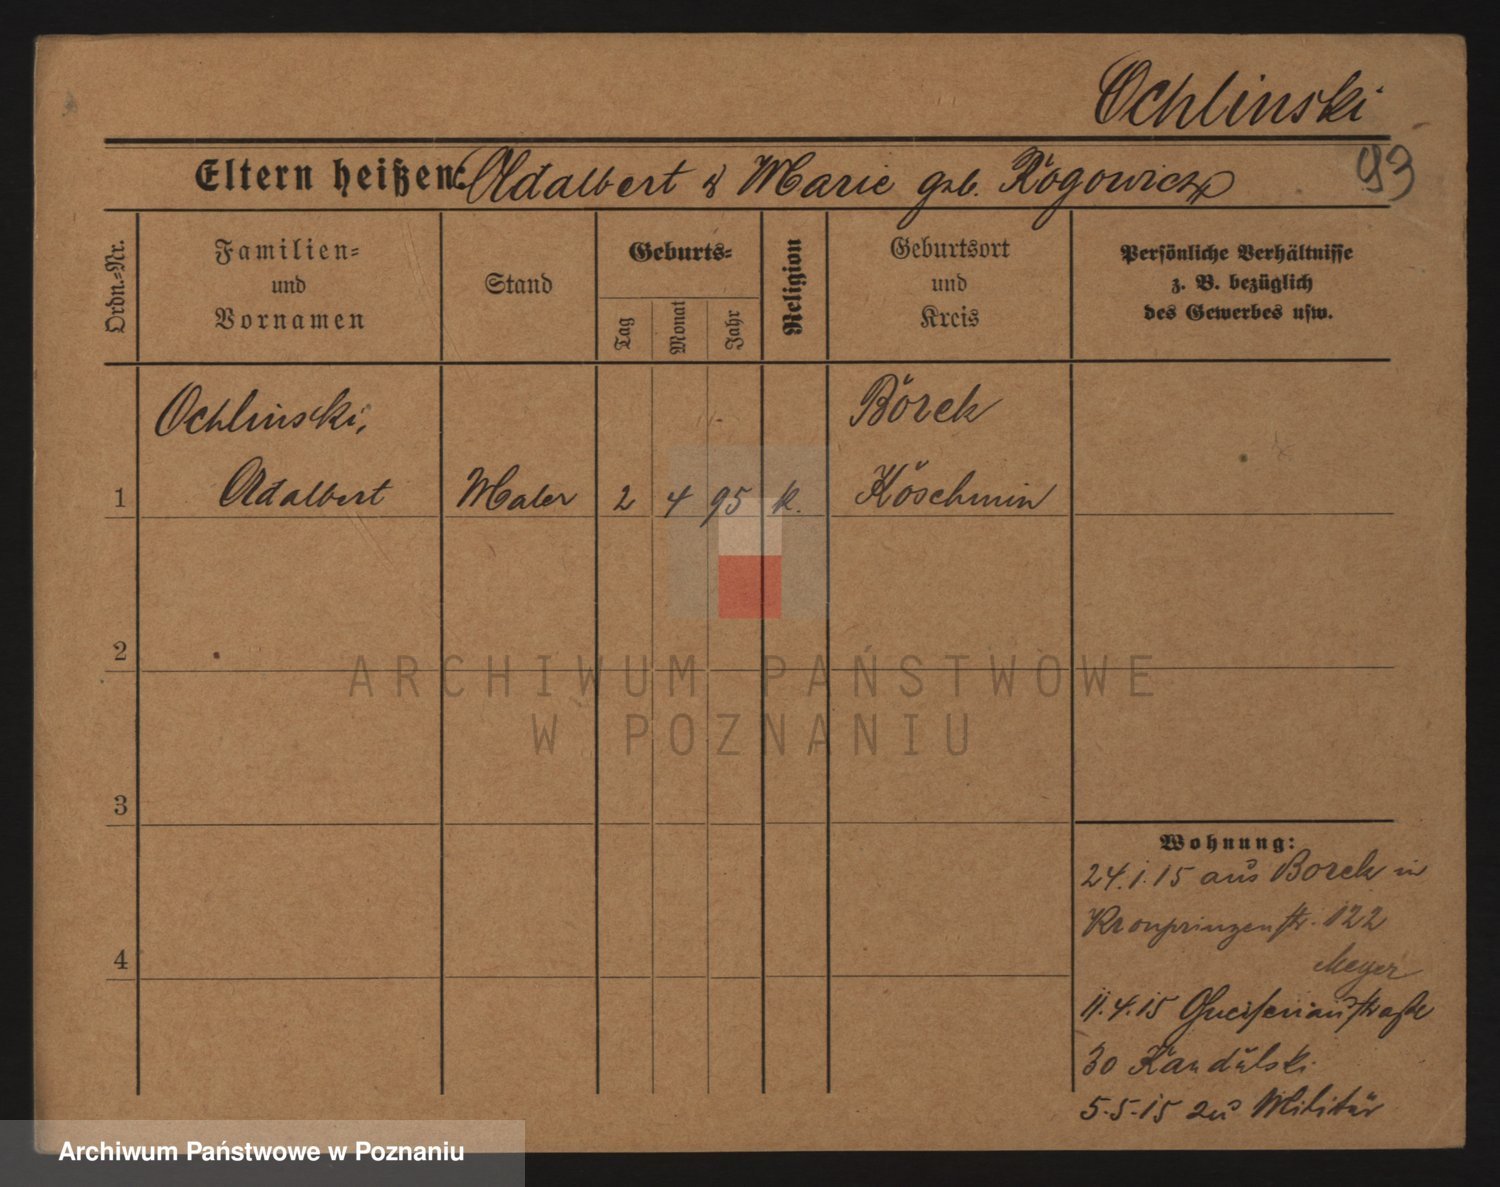 Ochlinski
Eltern heißen: Adalbert & Marie geb. Rogowicz
93
Ordn.=Nr.
Familien=
und
Vornamen
Stand
Geburts=
Tag
Monat
Jahr
Religion
Geburtsort
und
Kreis
Persönliche Verhältnisse
z. B. bezüglich
des Gewerbes usw.
Ochlinski,
Borek
1 Adalbert Maler 2 4 95 k. Koschmin
2
3
4
Wohnung:
24.1.15 aus Borek in
Kronprinzenstr. 122
Meyer
11.4.15 Gneisenaustraße
30 Kandulski
5.5.15 zu Militär
ARCHIWUM PAŃSTWOWE
W POZNANIU
Archiwum Państwowe w Poznaniu